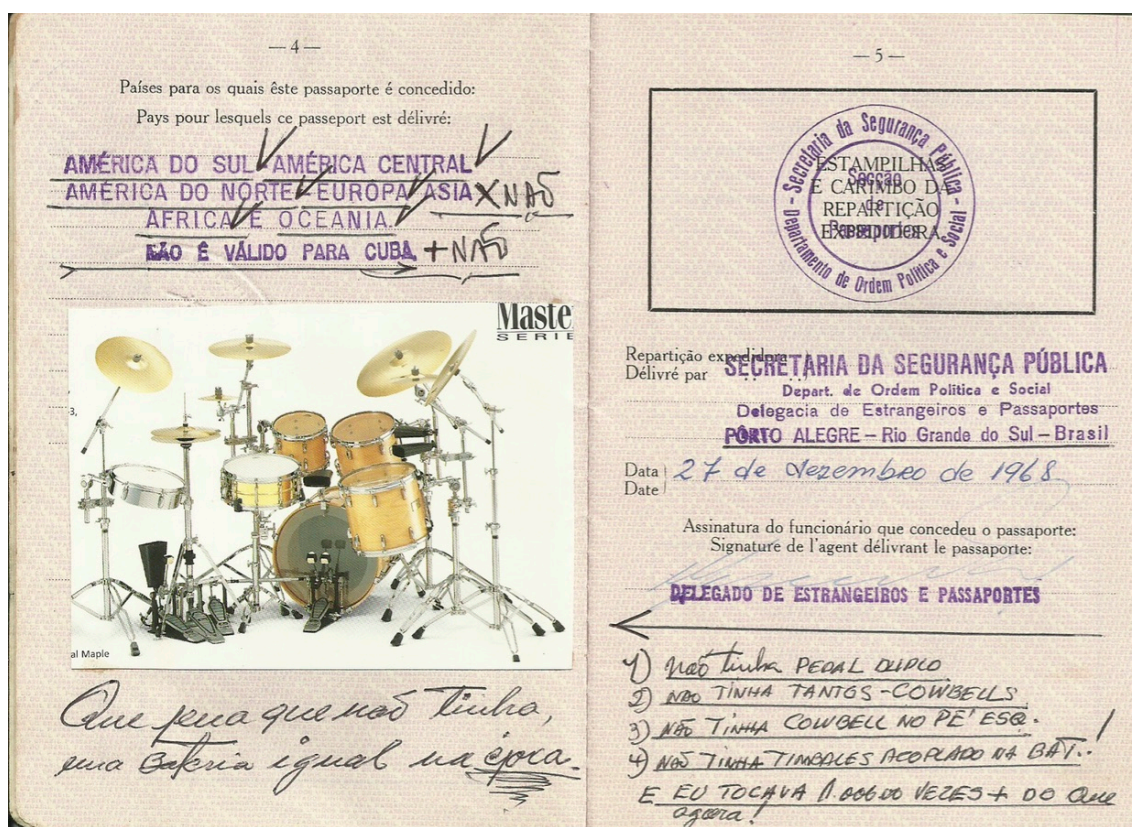 — 4 —
Países para os quais êste passaporte é concedido:
Pays pour lesquels ce passeport est délivré:
AMÉRICA DO SUL - AMÉRICA CENTRAL
AMÉRICA DO NORTE - EUROPA ASIA X NÃO
AFRICA E OCEANIA.
NÃO É VÁLIDO PARA CUBA + NÃO
Maste
SERIE
3,
al Maple
Que pena que não tinha,
uma Bateria igual na época.
— 5 —
Secretaria da Segurança Pública - Departamento de Ordem Politica e Social -
Secção de Passaportes
ESTAMPILHAS
E CARIMBO DA
REPARTIÇÃO
EXPEDIDORA
Repartição expedidora
Délivré par
SECRETARIA DA SEGURANÇA PÚBLICA
Depart. de Ordem Politica e Social
Delegacia de Estrangeiros e Passaportes
PÔRTO ALEGRE – Rio Grande do Sul – Brasil
Data
Date
27 de dezembro de 1968
Assinatura do funcionário que concedeu o passaporte:
Signature de l'agent délivrant le passeport:
DELEGADO DE ESTRANGEIROS E PASSAPORTES
1) Não tinha PEDAL DUPLO
2) NÃO TINHA TANTOS - COWBELLS
3) NÃO TINHA COWBELL NO PE' ESQ.
4) NÃO TINHA TIMBALES ACOPLADO NA BAT..!
E EU TOCAVA VEZES + DO QUE
agora!